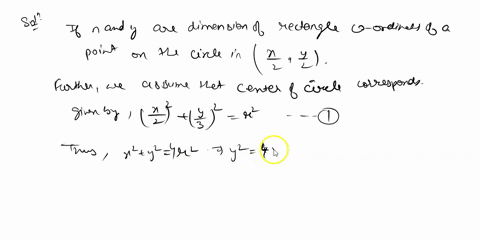 Solⁿ If x and y are dimension of rectangle co-ordinates of a
point on the circle in (x/2, y/2).
Further, we assume that center of circle corresponds.
given by, (x/2)² + (y/3)² = r² --- ①
Thus, x² + y² = 4r² ⇒ y² = 4